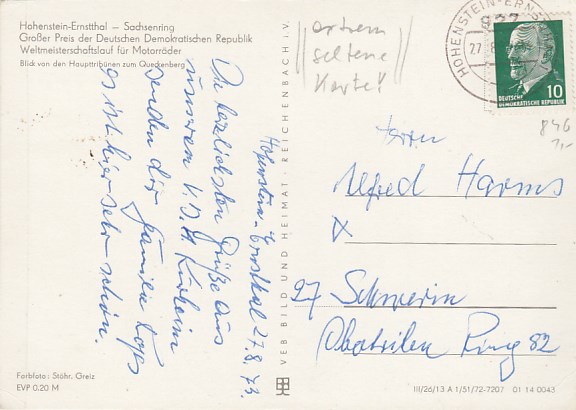 Hohenstein-Ernstthal — Sachsenring
Großer Preis der Deutschen Demokratischen Republik
Weltmeisterschaftslauf für Motorräder
Blick von den Haupttribünen zum Queckenberg
Hohenstein-Ernstthal 27.8.73.
Die herzlichsten Grüße aus
unserem
senden dir Familie
es ist hier sehr schön.
Farbfoto: Stöhr, Greiz
EVP 0.20 M
VEB BILD UND HEIMAT · REICHENBACH i. V.
extrem
seltene
Karte!
HOHENSTEIN-ERNS
27.8
10
DEUTSCHE
DEMOKRATISCHE REPUBLIK
846
1,-
Herrn
Alfred Harms
X
27 Schwerin
Ring 82
III/26/13 A 1/51/72-7207 01 14 0043